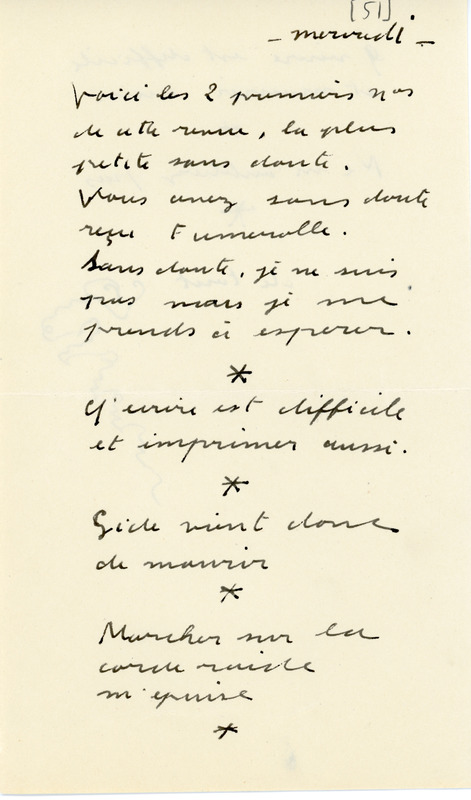 [51]
- mercredi -
Voici les 2 premiers nos
de cette revue, la plus
petite sans doute.
Vous avez sans doute
reçu Fumerolle.
Sans doute, je ne suis
pas mais je me
prends à espérer.
*
Qu'écrire est difficile
et imprimer aussi.
*
Gide vient donc
de mourir
*
Marcher sur la
corde raide
m'épuise
*